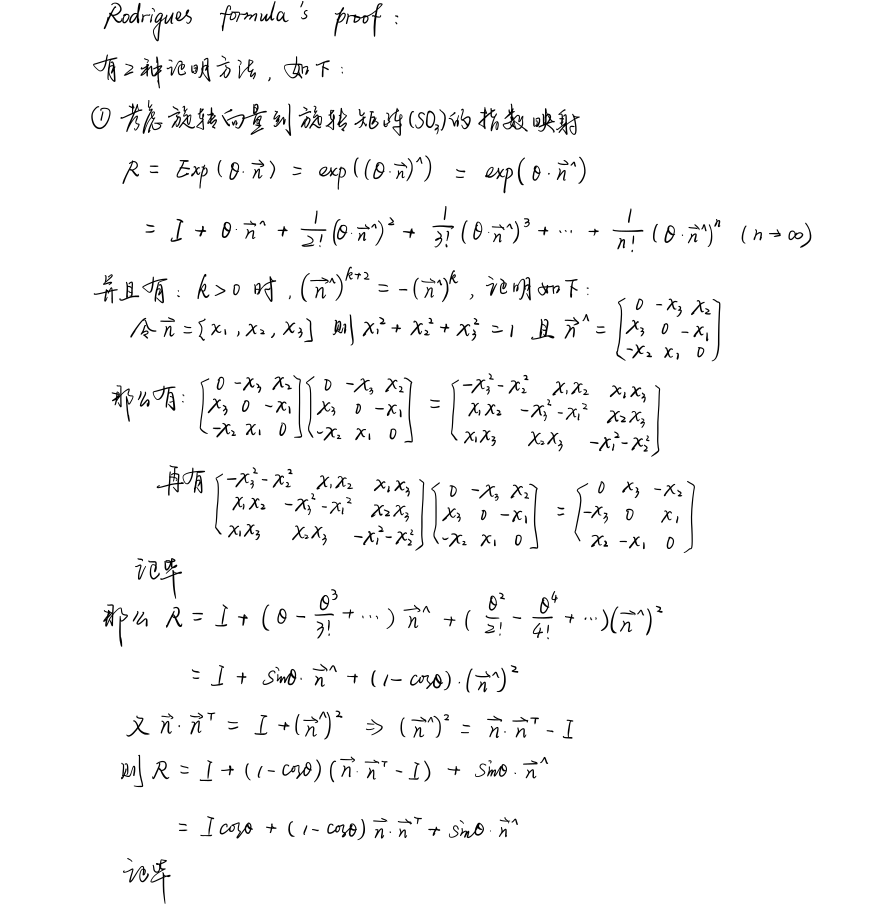 Rodrigues formula's proof:
有2种证明方法, 如下:
① 考虑旋转向量到旋转矩阵(SO₃)的指数映射
R = Exp(θ·n⃗) = exp((θ·n⃗)^) = exp(θ·n⃗^)
= I + θ·n⃗^ + 1/2! (θ·n⃗^)² + 1/3! (θ·n⃗^)³ + ··· + 1/n! (θ·n⃗^)ⁿ (n→∞)
并且有: k>0 时, (n⃗^)^(k+2) = -(n⃗^)^k, 证明如下:
令 n⃗ = [x₁, x₂, x₃] 则 x₁² + x₂² + x₃² = 1 且 n⃗^ = [0 -x₃ x₂; x₃ 0 -x₁; -x₂ x₁ 0]
那么有: [0 -x₃ x₂; x₃ 0 -x₁; -x₂ x₁ 0] [0 -x₃ x₂; x₃ 0 -x₁; -x₂ x₁ 0] = [-x₃²-x₂² x₁x₂ x₁x₃; x₁x₂ -x₃²-x₁² x₂x₃; x₁x₃ x₂x₃ -x₁²-x₂²]
再有 [-x₃²-x₂² x₁x₂ x₁x₃; x₁x₂ -x₃²-x₁² x₂x₃; x₁x₃ x₂x₃ -x₁²-x₂²] [0 -x₃ x₂; x₃ 0 -x₁; -x₂ x₁ 0] = [0 x₃ -x₂; -x₃ 0 x₁; x₂ -x₁ 0]
证毕
那么 R = I + (θ - θ³/3! + ···) n⃗^ + (θ²/2! - θ⁴/4! + ···)(n⃗^)²
= I + sinθ·n⃗^ + (1-cosθ)·(n⃗^)²
又 n⃗·n⃗ᵀ = I + (n⃗^)² ⇒ (n⃗^)² = n⃗·n⃗ᵀ - I
则 R = I + (1-cosθ)(n⃗·n⃗ᵀ - I) + sinθ·n⃗^
= I cosθ + (1-cosθ) n⃗·n⃗ᵀ + sinθ·n⃗^
证毕